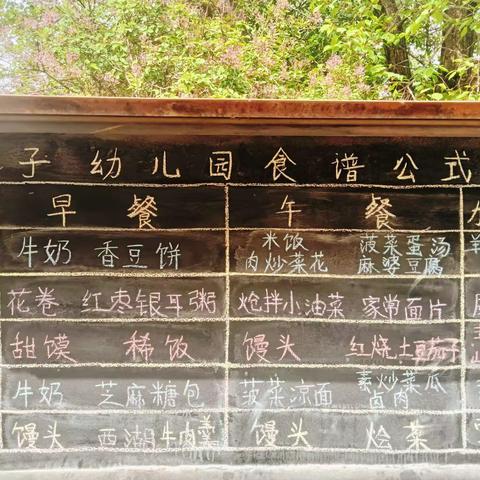 子幼儿园食谱公式
早餐 午餐
牛奶 香豆饼 米饭 菠菜蛋汤
肉炒菜花 麻婆豆腐
花卷 红枣银耳粥 炝拌小油菜 家常面片
甜馍 稀饭 馒头 红烧土豆茄子
牛奶 芝麻糖包 菠菜凉面 素炒菜瓜
卤肉
馒头 西湖牛肉羹 馒头 烩菜